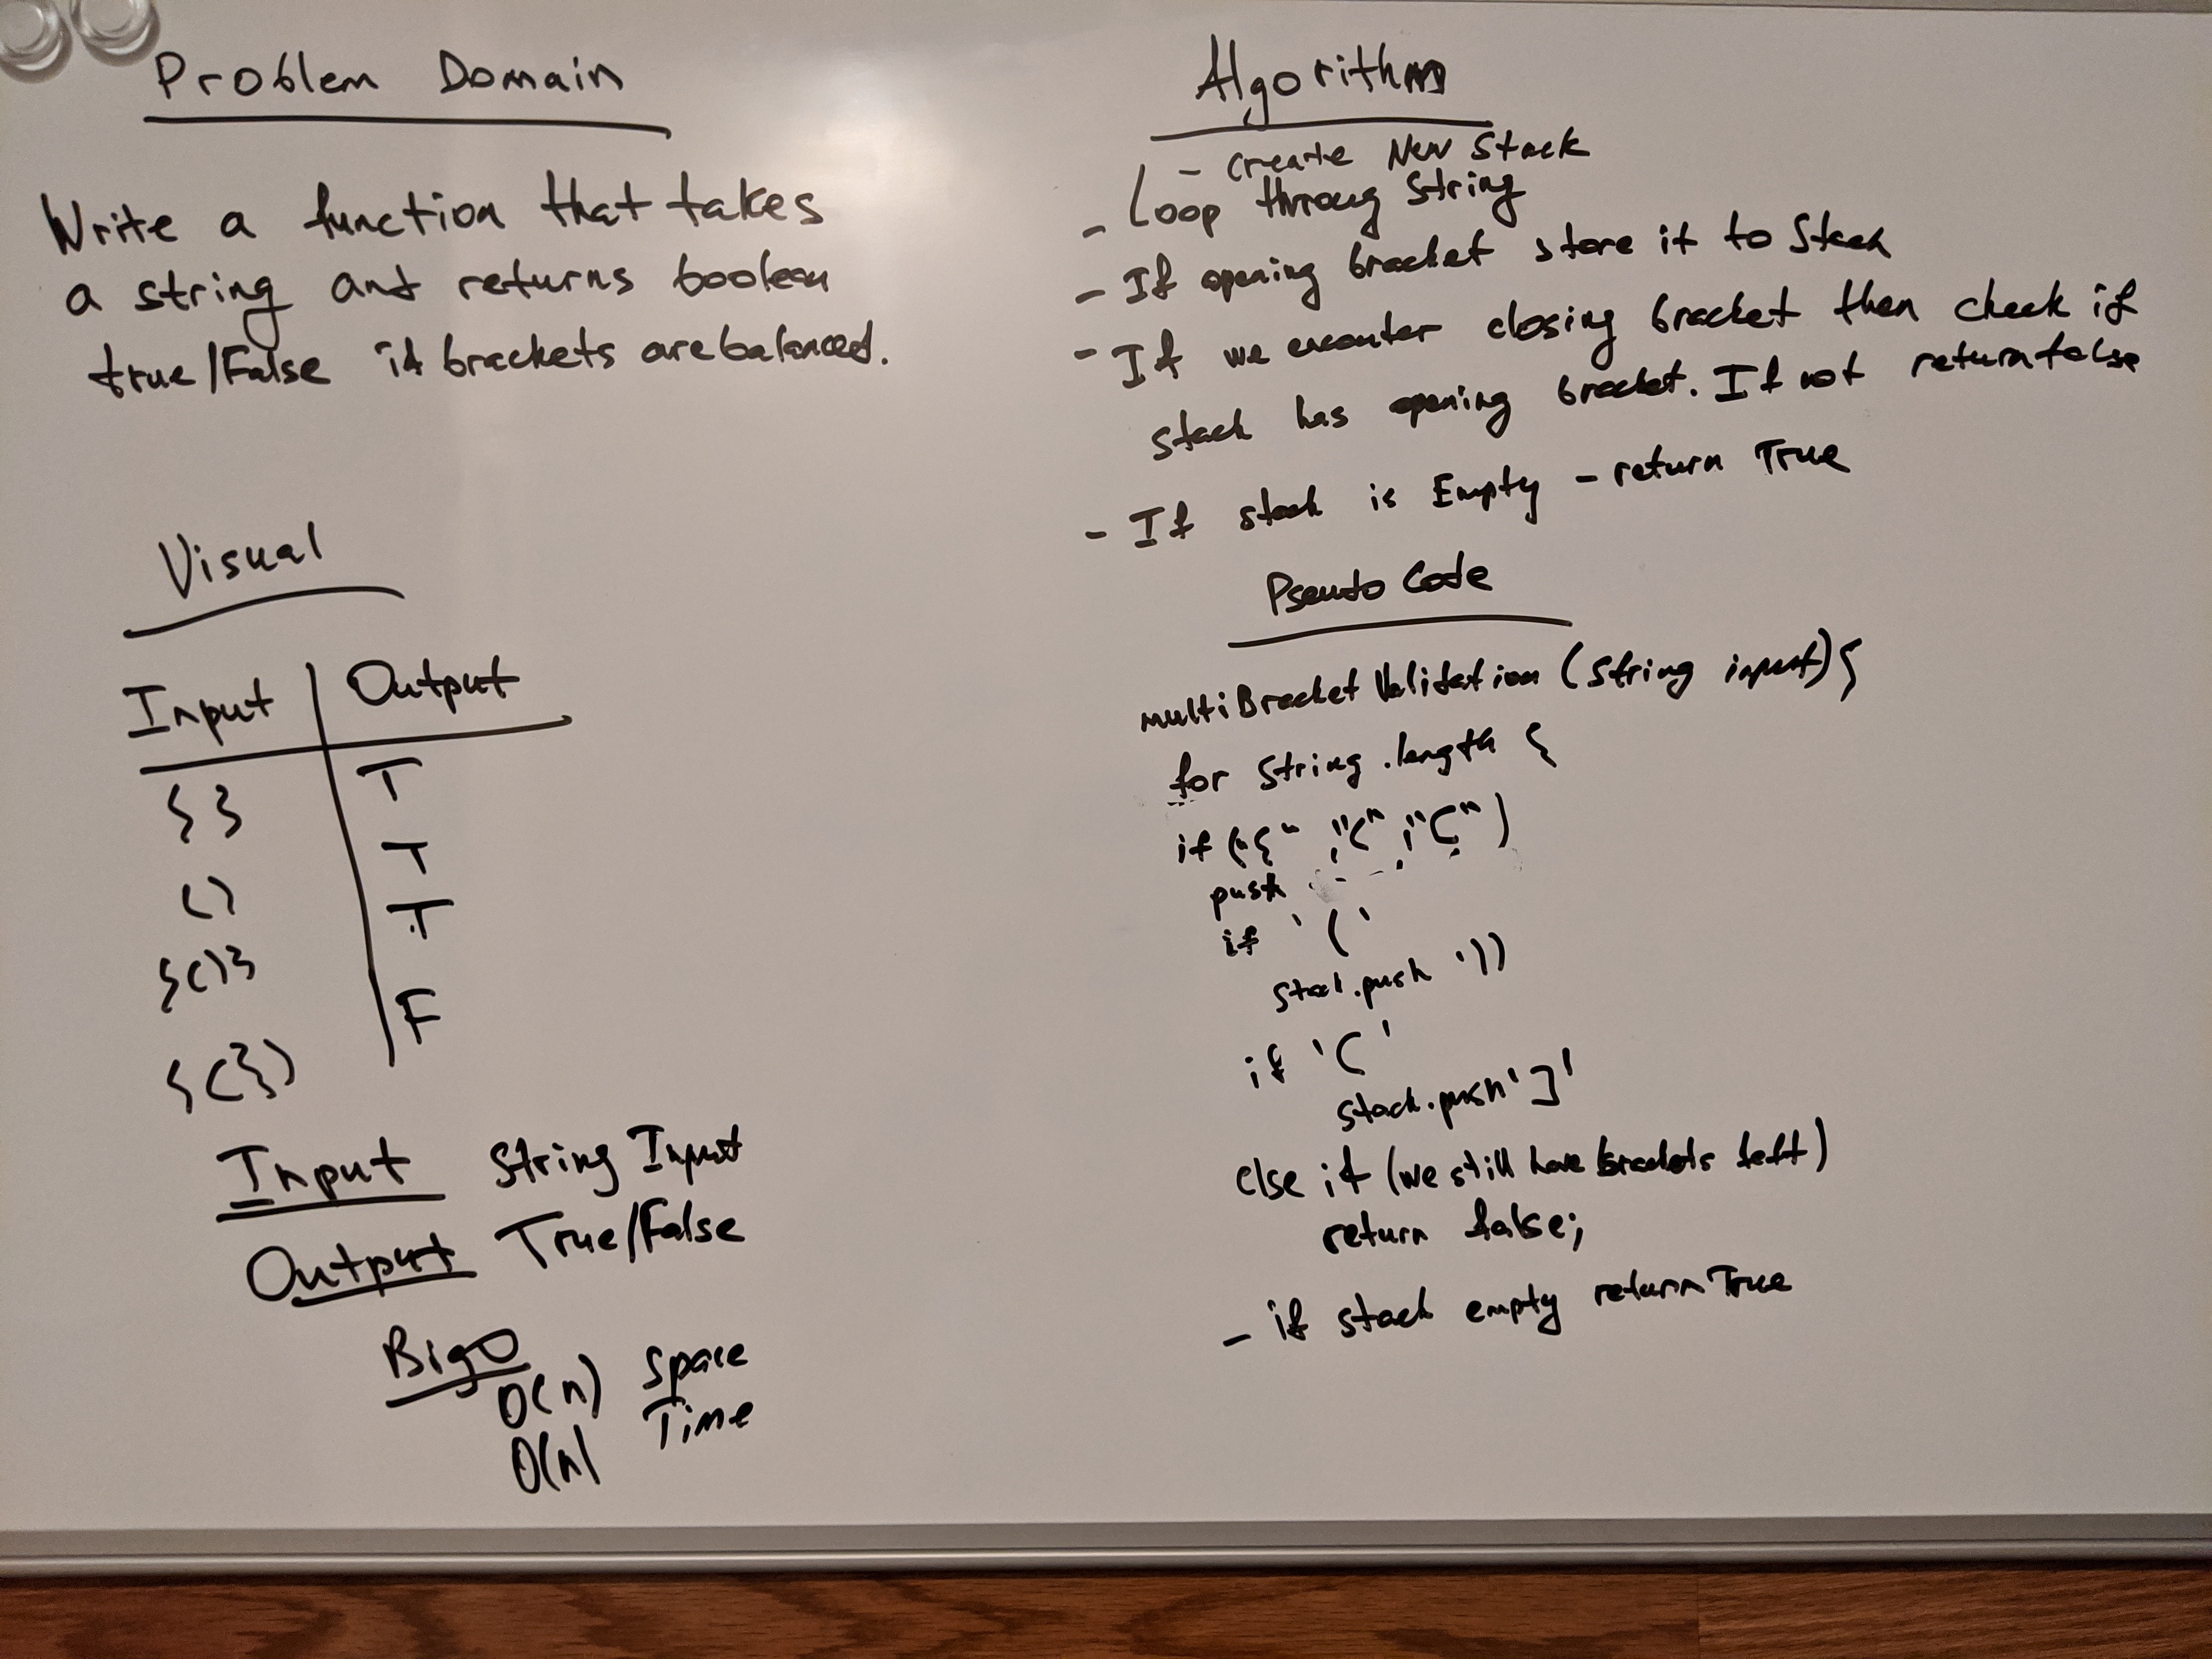 Problem Domain
Write a function that takes
a string and returns boolean
true/False if brackets are balanced.
Visual
Input | Output
{ } T
( ) T
{ ( ) } T
{ ( } ) F
Input String Input
Output True/False
Big O
O(n) Space
O(n) Time
Algorithm
- Create New Stack
- Loop throug String
- If opening bracket store it to Stack
- If we encounter closing bracket then check if
stack has opening bracket. If not return false
- If stack is Empty - return True
Pseuto Code
multiBracketValidation (String input) {
for String.length {
if ("{" , "(" , "[" )
push
if '('
stack.push '))
if '['
stack.push ']'
else if (we still have brackets left)
return false;
- if stack empty return True